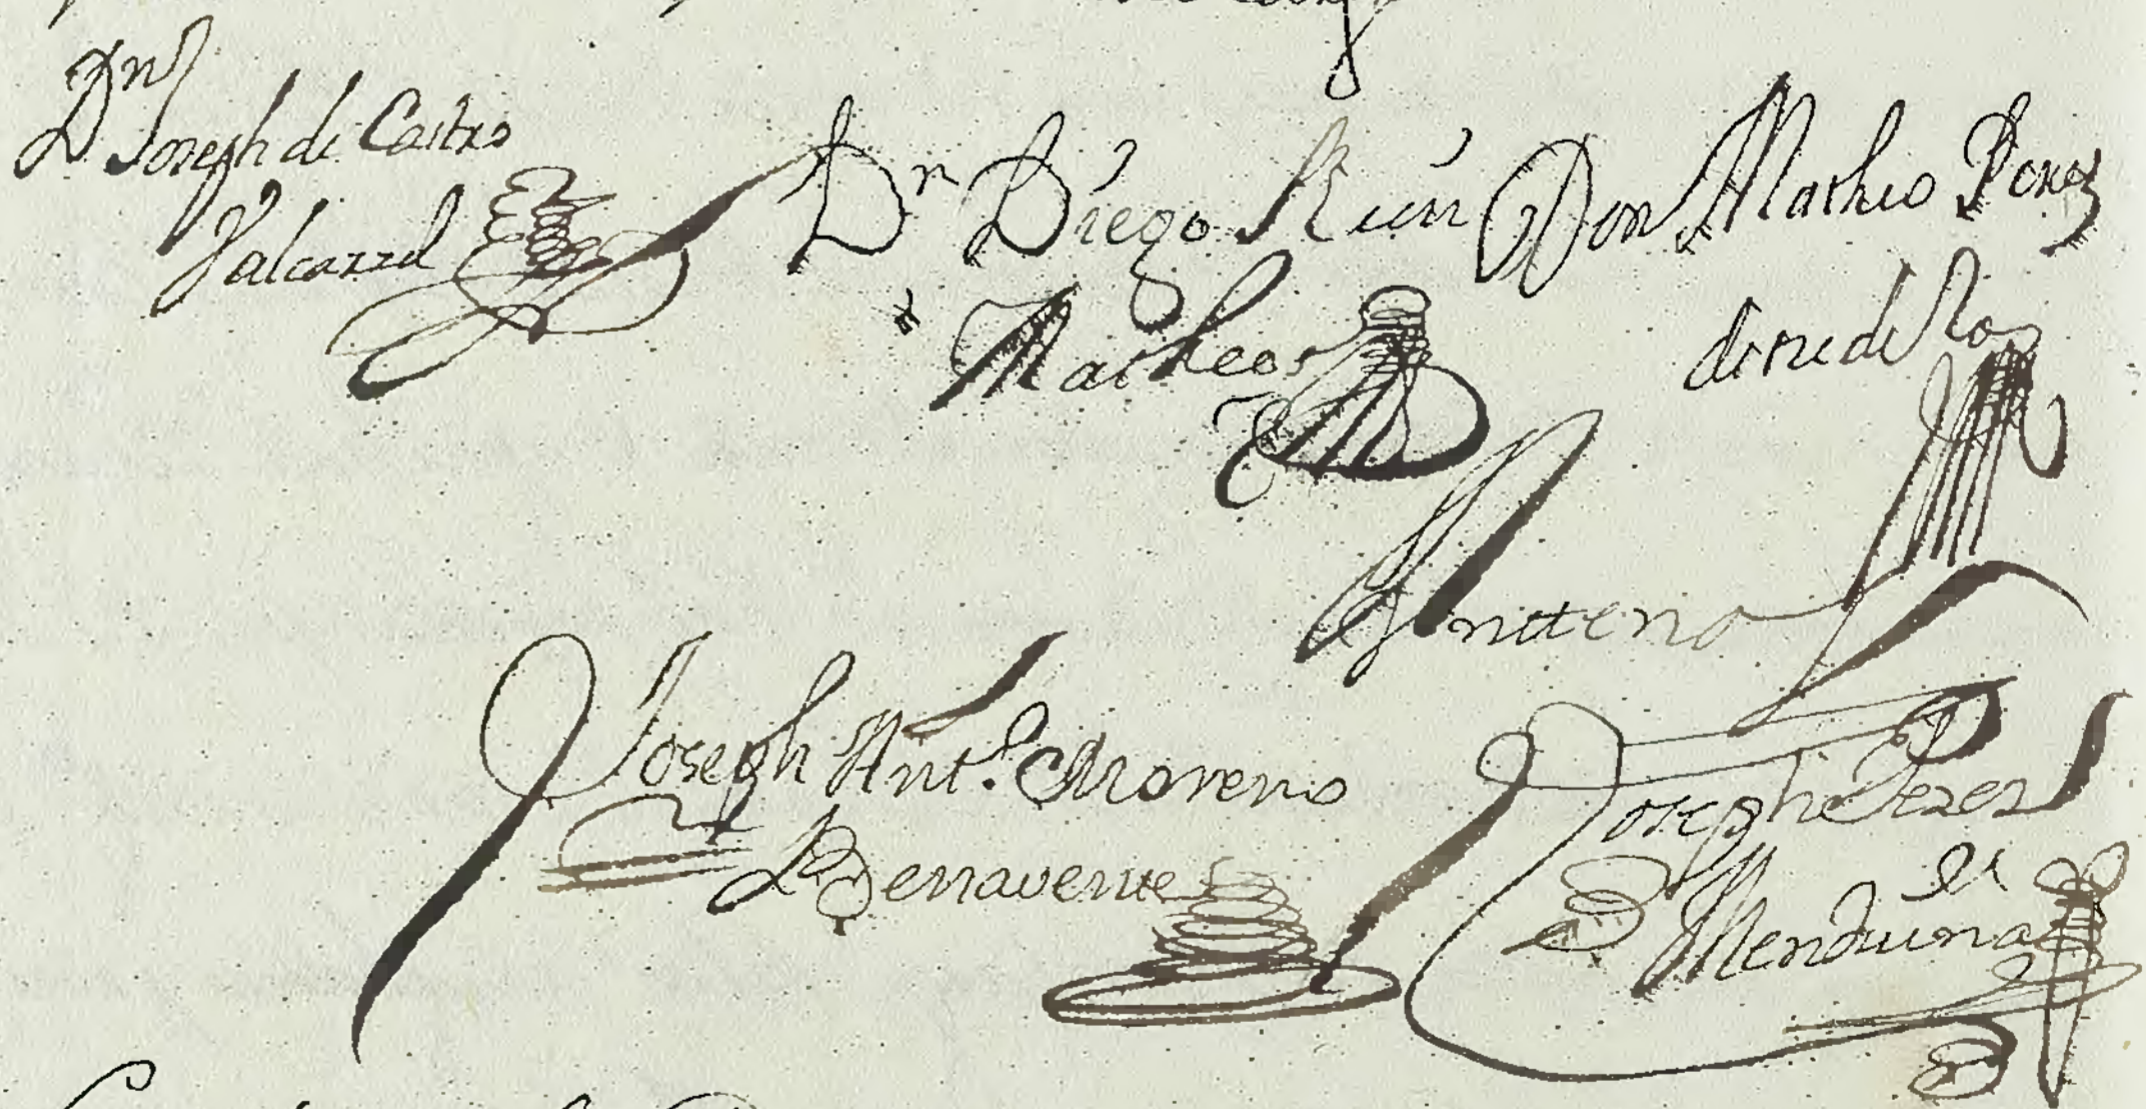 Dn Joseph de Castro
Valcazzel
Dn Diego
Matheos
Don Matheo Perez
Joseph Ant.º Moreno
Benavente
Joseph Perez
de
Menduina